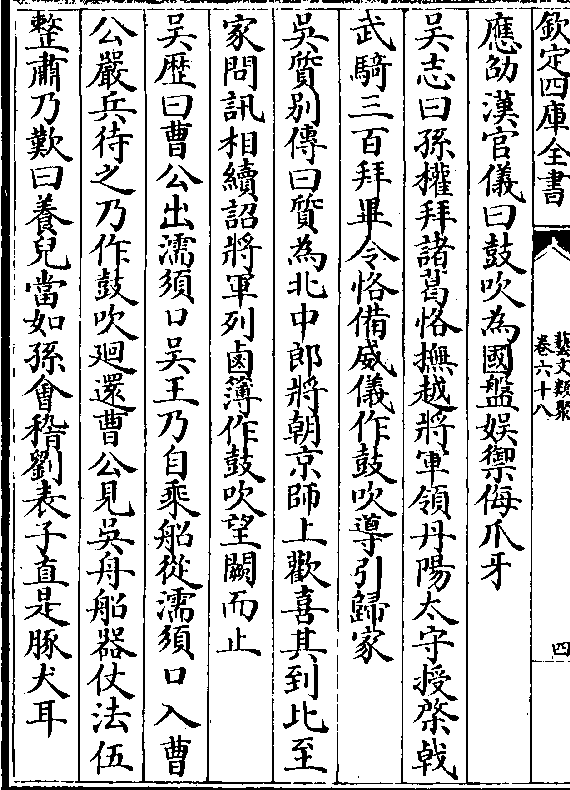 欽定四庫全書
藝文類聚
卷六十八
四
應劭漢官儀曰鼓吹為國盤娛禦侮爪牙
吳志曰孫權拜諸葛恪撫越將軍領丹陽太守授棨戟
武騎三百拜畢令恪備威儀作鼓吹導引歸家
吳質别傳曰質為北中郎將朝京師上歡喜其到比至
家問訊相續詔將軍列鹵簿作鼓吹望闕而止
吳歴曰曹公出濡須口吳王乃自乘船從濡須口入曹
公嚴兵待之乃作鼓吹廻還曹公見吳舟船器仗法伍
整肅乃歎曰養兒當如孫會稽劉表子直是豚犬耳